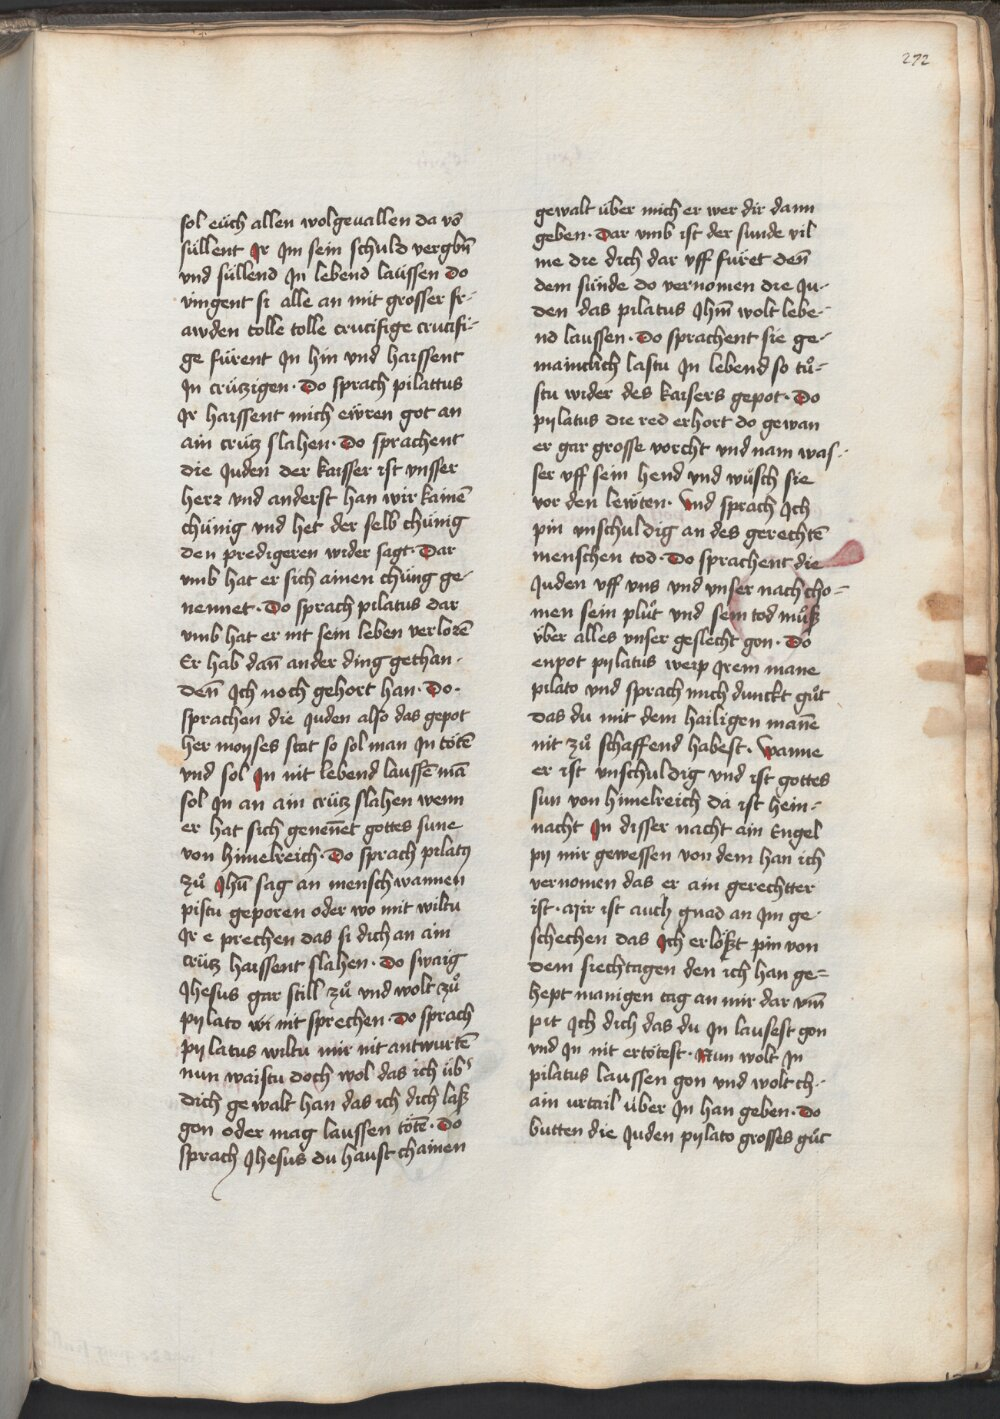 272
sol eüch allen wolgevallen da vō
süllent Ir Im sein schuld vergbn̄
vnd süllend In lebend laussen Do
vingent si alle an mit grosser fr-
awden tolle tolle crucifige crucifi-
ge fürent In hin vnd haissent
In crützigen · Do sprach pilattus
Ir haissent mich ewren got an
ain crütz slahen · Do sprachent
die Juden der kaisser ist vnsser
herz vnd anderst han wir kainē
chünig vnd het der selb chünig
den predigeren wider sagt · Dar
vmb hat er sich ainen chüng ge-
nennet · Do sprach pilatus dar
vmb hat er nit sein leben verlorē
Er hab dan̄ ander ding gethan ·
den̄ Ich noch gehort han · Do ·
sprachen die Juden also das gepot
her moyses stat so sol man In tötē
vnd sol In nit lebend laussē mā
sol In an ain crütz slahen wenn
er hat sich genen̄et gottes sune
von himelreich · Do sprach pilatꝫ
zuͦ Jhū sag an mensch wannen
pistu geporen oder wo mit wiltu
Ir e prechen das si dich an ain
crütz haissent slahen · Do swaig
Jhesus gar still zuͦ vnd wolt zuͦ
pylato wi nit sprechen · Do sprach
pylatus wiltu mir nit antwurtē
nun waistu doch wol das ich üb͛
dich gewalt han das ich dich laß
gon oder mag laussen tötē · Do
sprach Jhesus du haust chainen
gewalt über mich er wer dir dann
geben · Dar vmb ist der sunde vil
me die dich dar vff füret den̄
dem sünde do vernomen die Ju-
den das pilatus Jhm̄ wolt lebe-
nd laussen · Do sprachent sie ge-
mainclich lastu In lebend so tuͦ-
stu wider des kaisers gepot · Do
pylatus die red erhort do gewan
er gar grosse vorcht vnd nam was-
ser vff sein hend vnd wüsch sie
vor den lewten · Vnd sprach Ich
pin vnschuldig an des gerechtē
menschen tod · Do sprachent die
Juden vff vns vnd vnser nach cho=
men sein pluͦt vnd sein tod muͦß
über alles vnser geslecht gon · Do
enpot pylatus weip Irem mane
pilato vnd sprach mich dunckt guͦt
das du mit dem hailigen mañe
nit zuͦ schaffend habest · Wanne
er ist vnschuldig vnd ist gottes
sun von himelreich da ist hein-
nacht In disser nacht ain Engel
py mir gewessen von dem han ich
vernomen das er ain gerechtter
ist · Mir ist auch gnad an Im ge-
schechen das Ich erlößt pin von
dem siechtagen den ich han ge=
hept manigen tag an mir dar vm̄
pit Ich dich das du In lausest gon
vnd In nit ertötest · Nun wolt In
pilatus laussen gon vnd wolt ch-
ain vrtail über In han geben · Do
butten die Juden pylato grosses guͦt